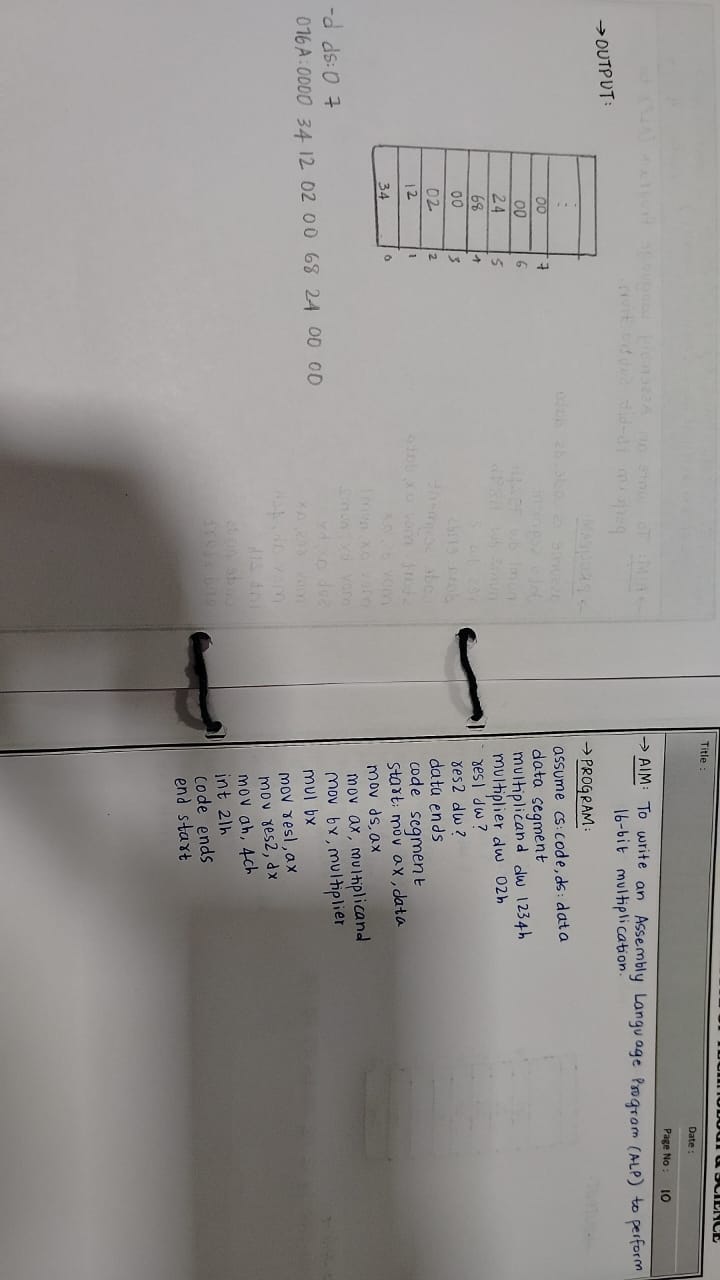 → OUTPUT:
:
00 7
00 6
24 5
68 4
00 3
02 2
12 1
34 0
-d ds:0 7
076A:0000 34 12 02 00 68 24 00 00
OF TECHNOLOGY & SCIENCE
Title :
Date :
Page No : 10
→ AIM: To write an Assembly Language Program (ALP) to perform
16-bit multiplication.
→ PROGRAM:
assume cs:code, ds:data
data segment
multiplicand dw 1234h
multiplier dw 02h
res1 dw ?
res2 dw ?
data ends
code segment
start: mov ax, data
mov ds, ax
mov ax, multiplicand
mov bx, multiplier
mul bx
mov res1, ax
mov res2, dx
mov ah, 4ch
int 21h
code ends
end start